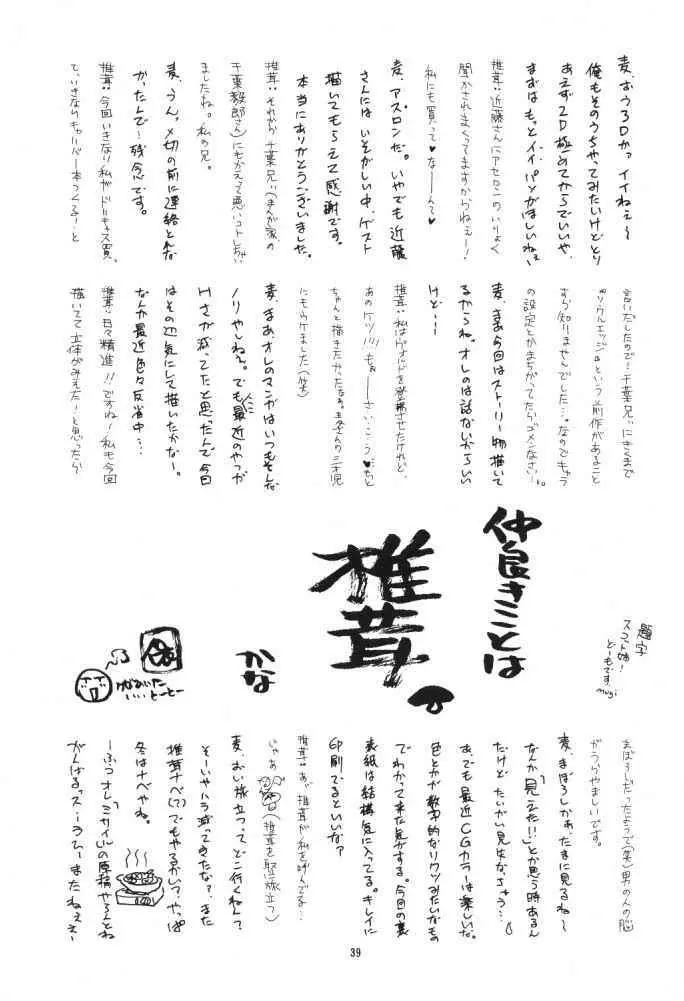 麦、おう3Dかっ イイねぇ〜
俺もそのうちやってみたいけどとり
あえず2D極めてからでいいや、
まずは、もっとイイパソがほしいねぇ
椎茸:近藤さんにアセロンのいりょく
聞かされまくってますからねぇー!
私にも買って♥な――んて♥
麦、アスロンだ。いやでも近藤
さんには いそがしい中、ゲスト
描いてもらえて感謝です。
本当にありがとうございました。
椎茸:それから千葉兄ぃ(まんが家の
千葉毅郎さん)にもかえて悪いコトしちゃい
ましたね。私の兄。
麦、うん、〆切の前に連絡とれな
かったんで…残念です。
椎茸:今回いきなり私がドリキャス買っ
て、いきなりキャリバー本つくる!と
言いだしたので…千葉兄ぃにきくまで
『ソウルエッジ』という前作があること
すら知りませんでした…。なのでキャラ
の設定とかまちがってたらゴメンなさい…。
麦、まあ今回はストーリー物描いて
るからね。オレのは話ないからいい
けど…
椎茸:私はヴォルドを登場させたけれど、
あのケツ!!!もぉ――さいこう…♥もと
ちゃんと描きたかったなぁ。
にもウケました(笑)
麦、まあ、オレのマンガはいつもそんな
ノリやしねぇ。でも最近のやつが
Hさが減ってたと思ったんで今回
はその辺気にして描いたかなー。
なんか最近色々反省中…
椎茸:日々精進!!ですね!私も今回
描いてて立体がみえた!と思ったら
仲良きことは
椎茸。
かな
題字
スコット姉!
どーもです。
mugi
まぼろしだったようで(笑)男の人の脳
がうらやましいです。
麦、まぼろしかぁ、たまに見るね〜
なんか「見えた!!」とか思う時あるん
だけど、たいがい見失なちゃう…
あ、でも最近CGカラーは楽しい。
色とかが数字的なリクツみたいなもの
でわかって来た気がする。今回の裏
表紙は結構気に入ってる。キレイに
印刷でるといいな?
椎茸:あ、椎茸が私を呼んでる…
じゃあ(椎茸を堅に旅立つ)
麦、おい旅立つってどこ行くねん?
そーいやハラ減ってきたな?、また
椎茸ナベ(?)でもやるかい?やっぱ
冬はナベやね。
ーふっ オレ「ミサイル」の原稿やろんとね
がんばるっス…うひー またねぇぇ〜
39